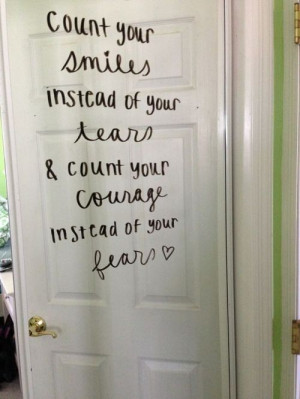 Count your
smiles
instead of your
tears
& count your
courage
instead of your
fears ♡